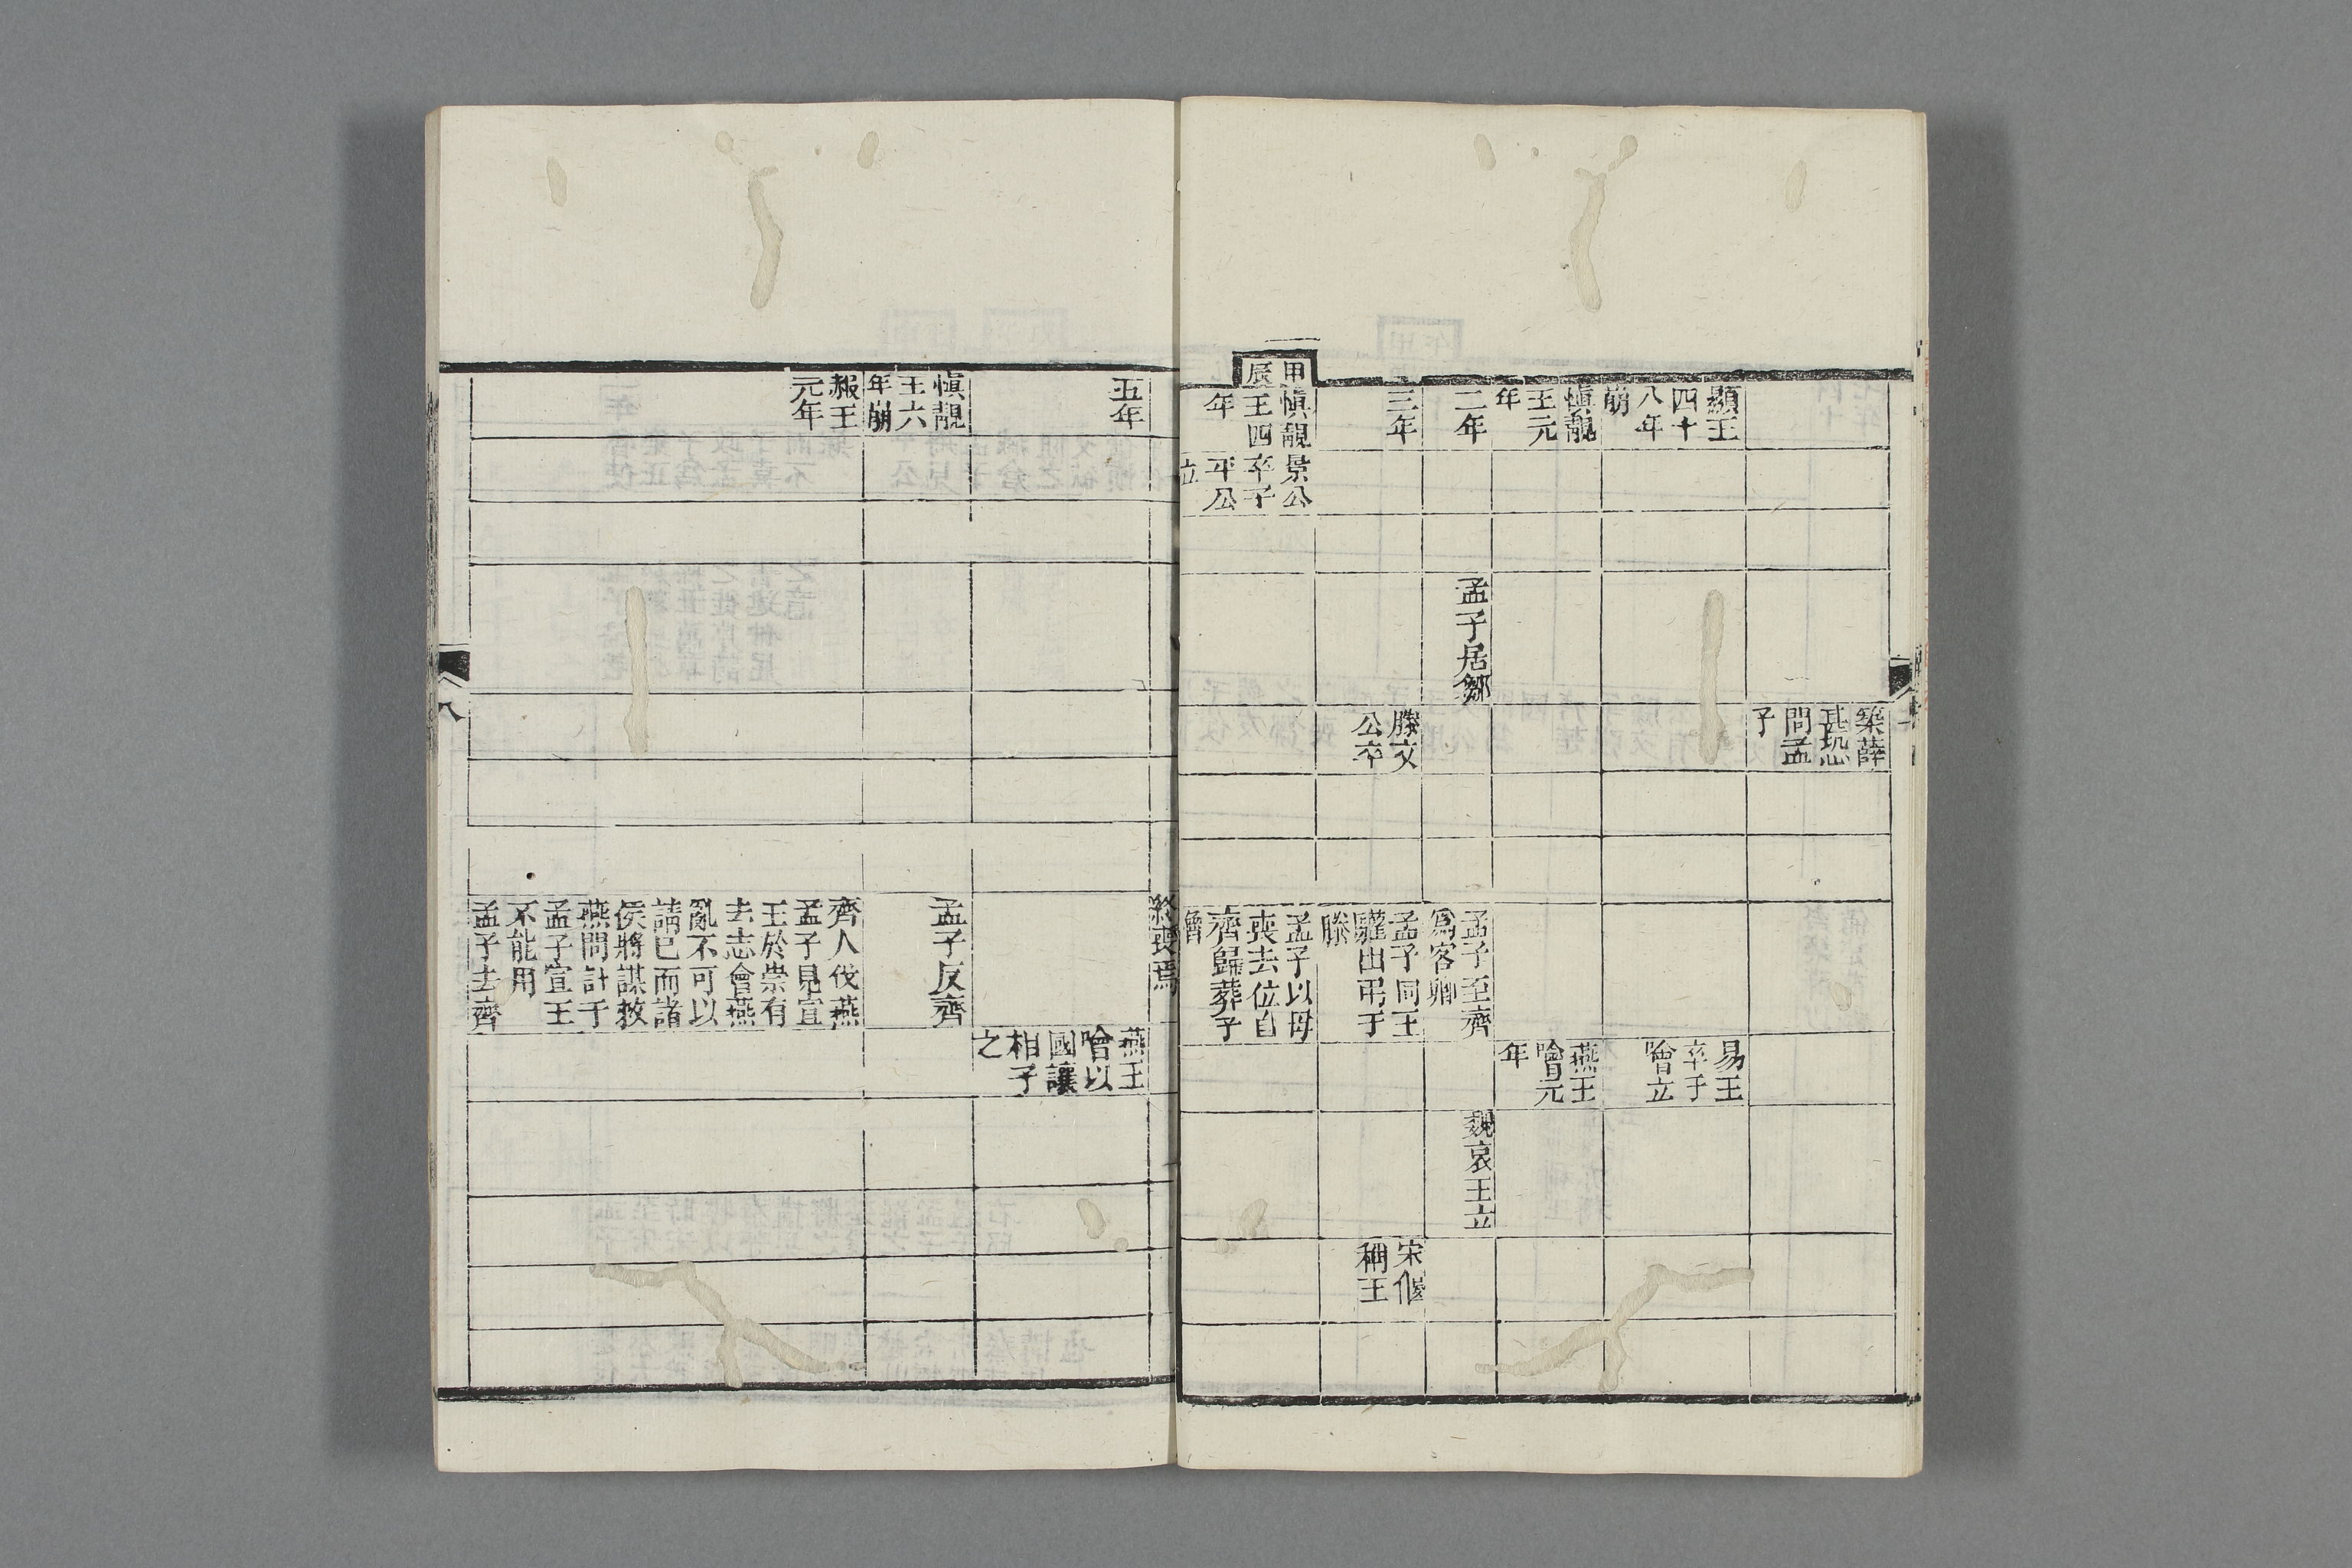 築薛
甚恐
問孟
子
顯王
四十
八年
崩
易王
卒子
噲立
愼靚
王元
年
燕王
噲元
年
二年
孟子居鄒
孟子至齊
爲客卿
魏哀王立
三年
滕文
公卒
孟子同王
驩出弔于
滕
宋偃
稱王
甲
辰
愼靚
王四
年
景公
卒子
平公
立
孟子以母
喪去位自
齊歸葬子
終喪焉
五年
燕王
噲以
國讓
相子
之
愼靚
王六
年崩
孟子反齊
赧王
元年
齊人伐燕
孟子見宣
王於崇有
去志會燕
亂不可以
請已而諸
侯將謀救
燕問計于
孟子宣王
不能用
孟子去齊
八